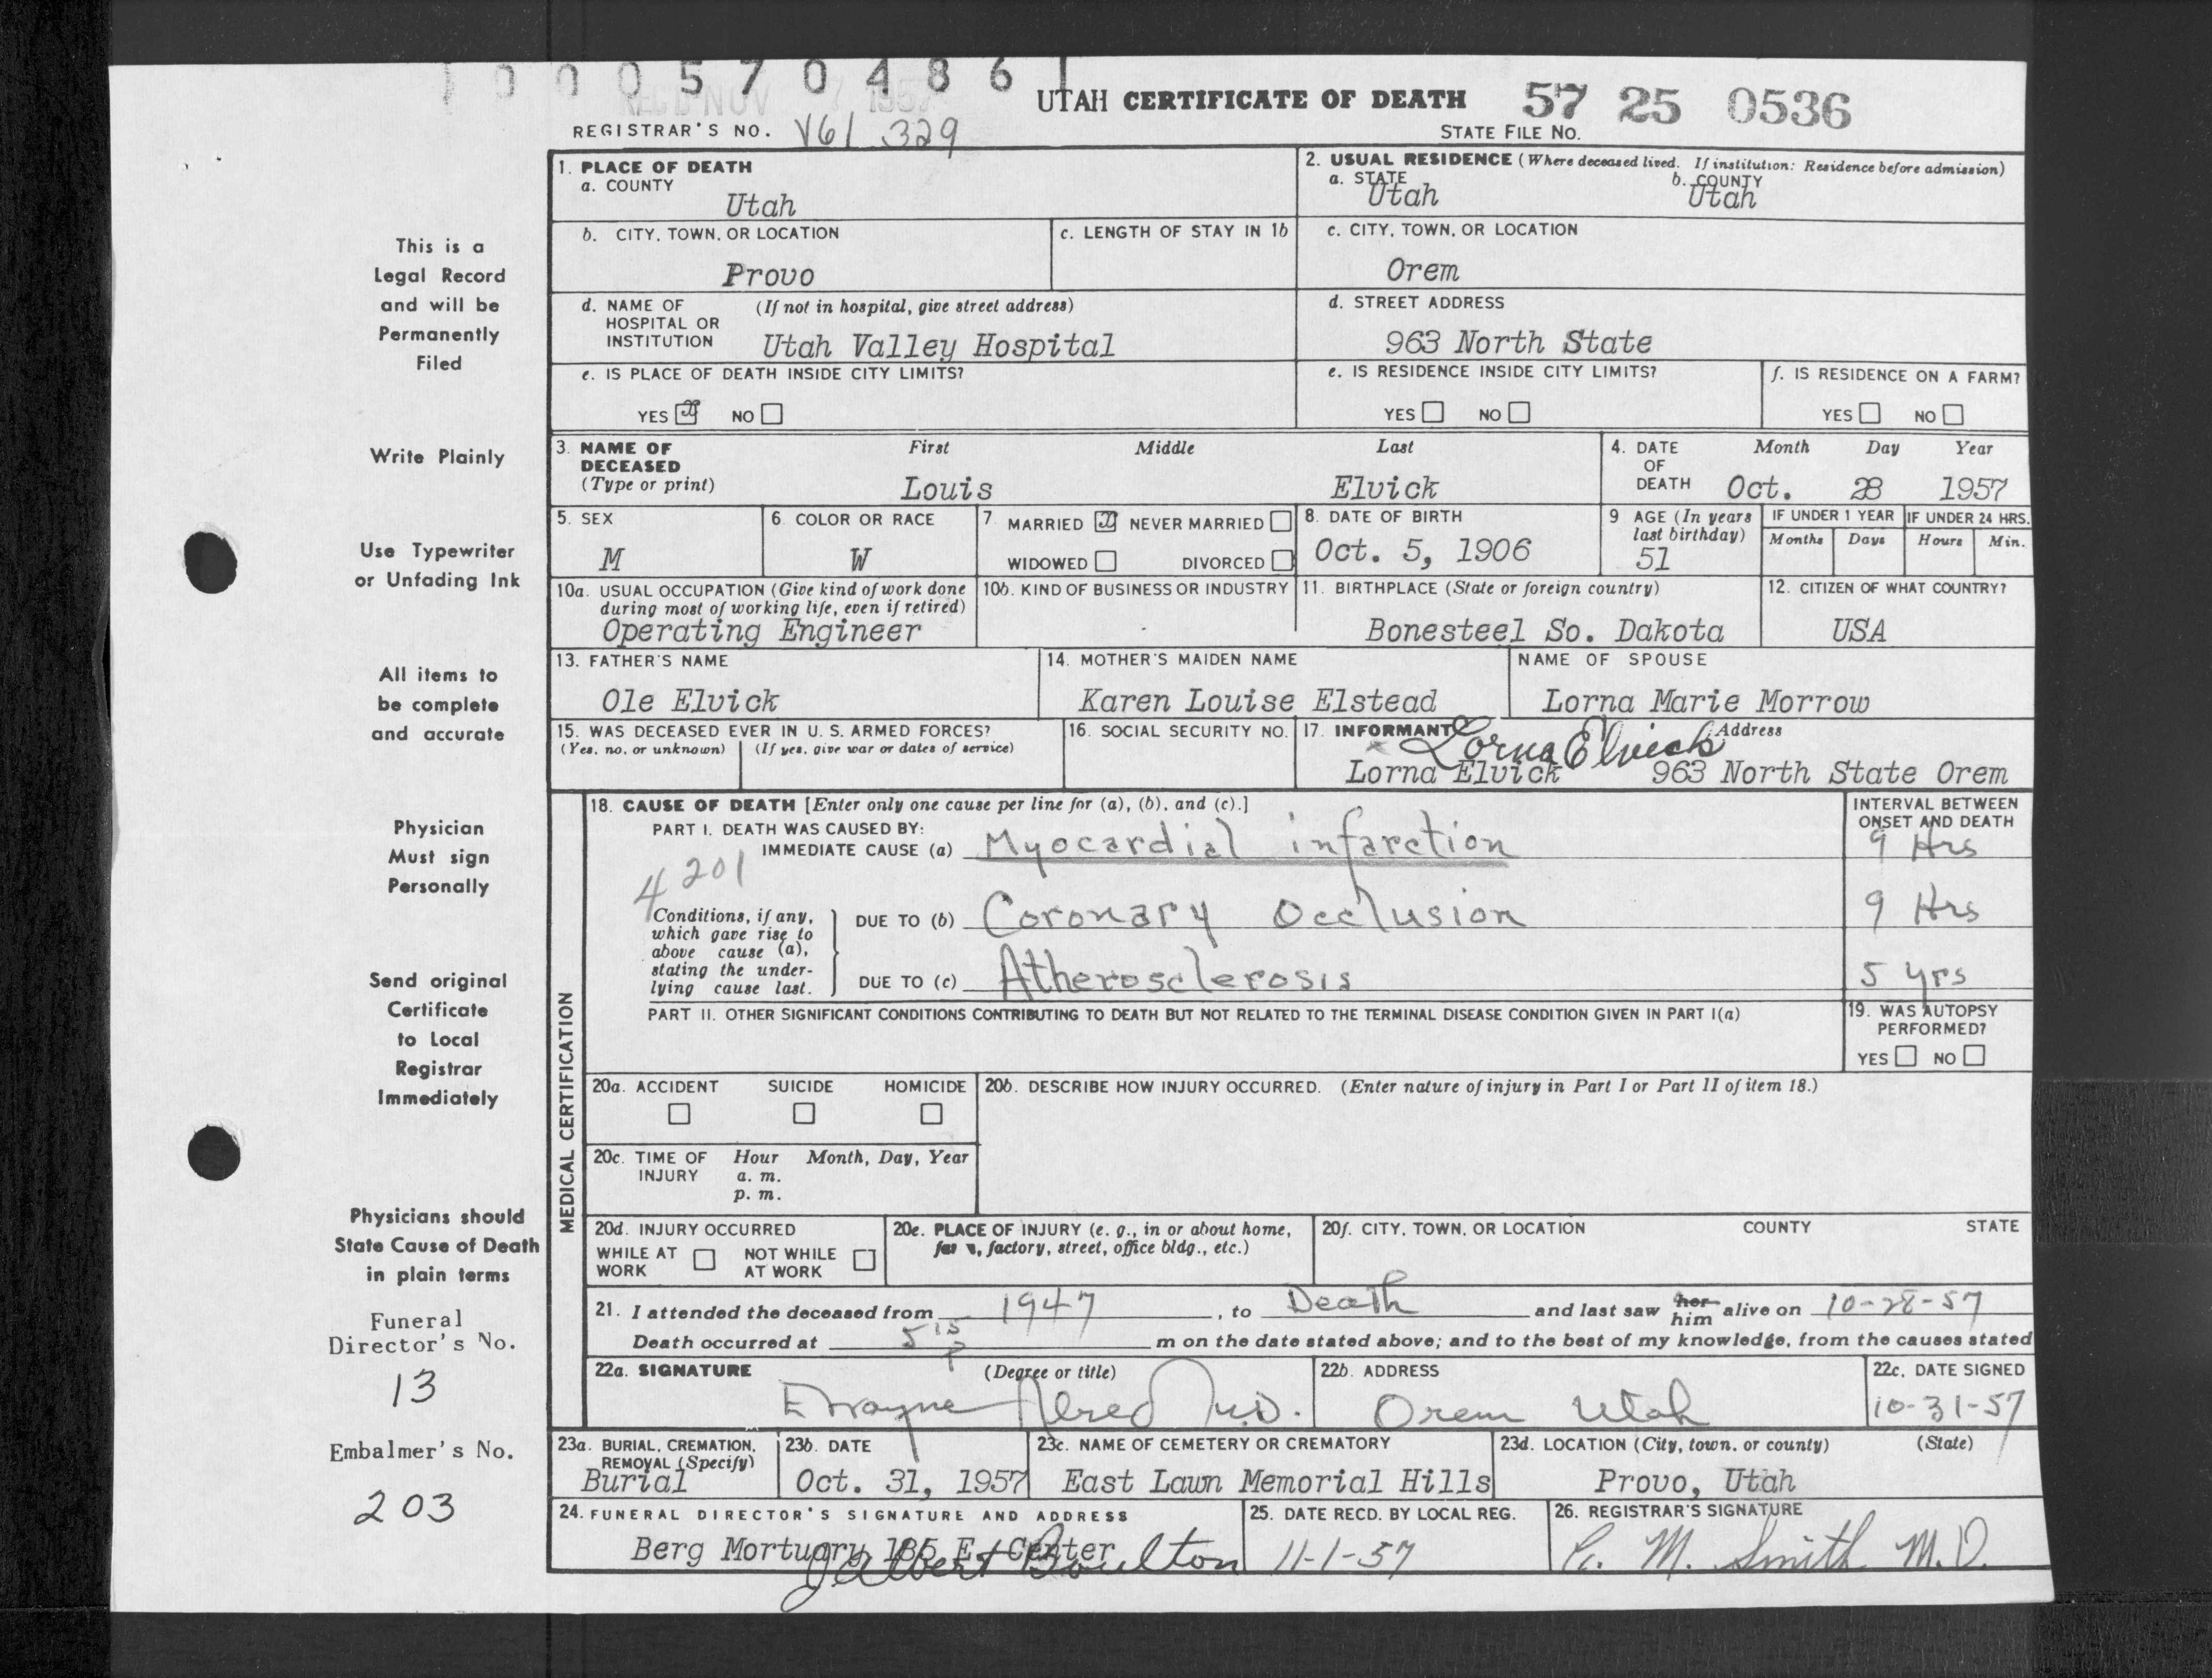 1 0 0 0 5 7 0 4 8 6 1
REC'D NOV 7 1957
UTAH CERTIFICATE OF DEATH 57 25 0536
REGISTRAR'S NO. V61 329
STATE FILE NO.
This is a
Legal Record
and will be
Permanently
Filed
Write Plainly
Use Typewriter
or Unfading Ink
All items to
be complete
and accurate
Physician
Must sign
Personally
Send original
Certificate
to Local
Registrar
Immediately
Physicians should
State Cause of Death
in plain terms
Funeral
Director's No.
13
Embalmer's No.
203
1. PLACE OF DEATH
a. COUNTY
Utah
2. USUAL RESIDENCE (Where deceased lived. If institution: Residence before admission)
a. STATE b. COUNTY
Utah Utah
b. CITY, TOWN, OR LOCATION
Provo
c. LENGTH OF STAY IN 1b
c. CITY, TOWN, OR LOCATION
Orem
d. NAME OF (If not in hospital, give street address)
HOSPITAL OR
INSTITUTION Utah Valley Hospital
d. STREET ADDRESS
963 North State
e. IS PLACE OF DEATH INSIDE CITY LIMITS?
YES x NO
e. IS RESIDENCE INSIDE CITY LIMITS?
YES NO
f. IS RESIDENCE ON A FARM?
YES NO
3. NAME OF
DECEASED
(Type or print)
First Middle Last
Louis Elvick
4. DATE
OF
DEATH
Month Day Year
Oct. 28 1957
5. SEX
M
6. COLOR OR RACE
W
7. MARRIED x NEVER MARRIED
WIDOWED DIVORCED
8. DATE OF BIRTH
Oct. 5, 1906
9 AGE (In years
last birthday)
51
IF UNDER 1 YEAR IF UNDER 24 HRS.
Months Days Hours Min.
10a. USUAL OCCUPATION (Give kind of work done
during most of working life, even if retired)
Operating Engineer
10b. KIND OF BUSINESS OR INDUSTRY
11. BIRTHPLACE (State or foreign country)
Bonesteel So. Dakota
12. CITIZEN OF WHAT COUNTRY?
USA
13. FATHER'S NAME
Ole Elvick
14. MOTHER'S MAIDEN NAME
Karen Louise Elstead
NAME OF SPOUSE
Lorna Marie Morrow
15. WAS DECEASED EVER IN U. S. ARMED FORCES?
(Yes, no, or unknown) (If yes, give war or dates of service)
16. SOCIAL SECURITY NO.
17. INFORMANT Address
Lorna Elvick
Lorna Elvick 963 North State Orem
MEDICAL CERTIFICATION
18. CAUSE OF DEATH [Enter only one cause per line for (a), (b), and (c).]
INTERVAL BETWEEN
ONSET AND DEATH
PART I. DEATH WAS CAUSED BY:
IMMEDIATE CAUSE (a) Myocardial infarction 9 Hrs
4201
Conditions, if any,
which gave rise to
above cause (a),
stating the under-
lying cause last.
DUE TO (b) Coronary Occlusion 9 Hrs
DUE TO (c) Atherosclerosis 5 yrs
PART II. OTHER SIGNIFICANT CONDITIONS CONTRIBUTING TO DEATH BUT NOT RELATED TO THE TERMINAL DISEASE CONDITION GIVEN IN PART I(a)
19. WAS AUTOPSY
PERFORMED?
YES NO
20a. ACCIDENT SUICIDE HOMICIDE
20b. DESCRIBE HOW INJURY OCCURRED. (Enter nature of injury in Part I or Part II of item 18.)
20c. TIME OF INJURY
Hour Month, Day, Year
a. m.
p. m.
20d. INJURY OCCURRED
WHILE AT WORK NOT WHILE AT WORK
20e. PLACE OF INJURY (e. g., in or about home,
farm, factory, street, office bldg., etc.)
20f. CITY, TOWN, OR LOCATION COUNTY STATE
21. I attended the deceased from 1947, to Death and last saw her him alive on 10-28-57
Death occurred at 5 15 P m on the date stated above; and to the best of my knowledge, from the causes stated
22a. SIGNATURE (Degree or title)
M.D.
22b. ADDRESS
Orem Utah
22c. DATE SIGNED
10-31-57
23a. BURIAL, CREMATION,
REMOVAL (Specify)
Burial
23b. DATE
Oct. 31, 1957
23c. NAME OF CEMETERY OR CREMATORY
East Lawn Memorial Hills
23d. LOCATION (City, town, or county) (State)
Provo, Utah
24. FUNERAL DIRECTOR'S SIGNATURE AND ADDRESS
Berg Mortuary 185 E. Center
J Albert Boulton
25. DATE RECD. BY LOCAL REG.
11-1-57
26. REGISTRAR'S SIGNATURE
M. Smith M.D.